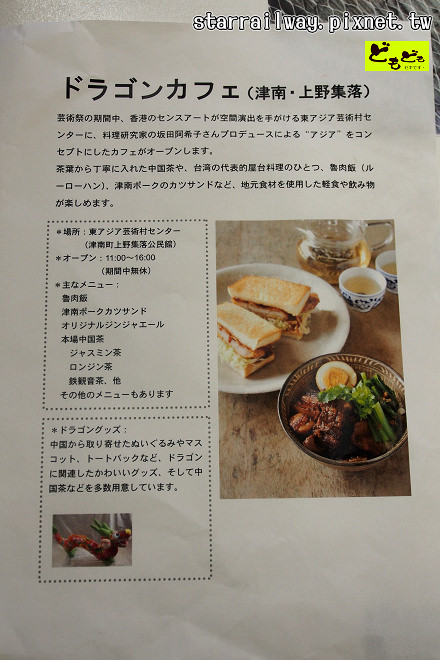 starrailway.pixnet.tw
どもども
ドラゴンカフェ(津南・上野集落)
芸術祭の期間中、香港のセンスアートが空間演出を手がける東アジア芸術村セ
ンターに、料理研究家の坂田阿希子さんプロデュースによる“アジア”をコン
セプトにしたカフェがオープンします。
茶葉から丁寧に入れた中国茶や、台湾の代表的屋台料理のひとつ、魯肉飯(ル
ーローハン)、津南ポークのカツサンドなど、地元食材を使用した軽食や飲み物
が楽しめます。
＊場所：東アジア芸術村センター
(津南町上野集落公民館)
＊オープン：11:00〜16:00
(期間中無休)
＊主なメニュー：
魯肉飯
津南ポークカツサンド
オリジナルジンジャエール
本場中国茶
ジャスミン茶
ロンジン茶
鉄観音茶、他
その他のメニューもあります
＊ドラゴングッズ：
中国から取り寄せたぬいぐるみやマス
コット、トートバックなど、ドラゴン
に関連したかわいいグッズ、そして中
国茶などを多数用意しています。